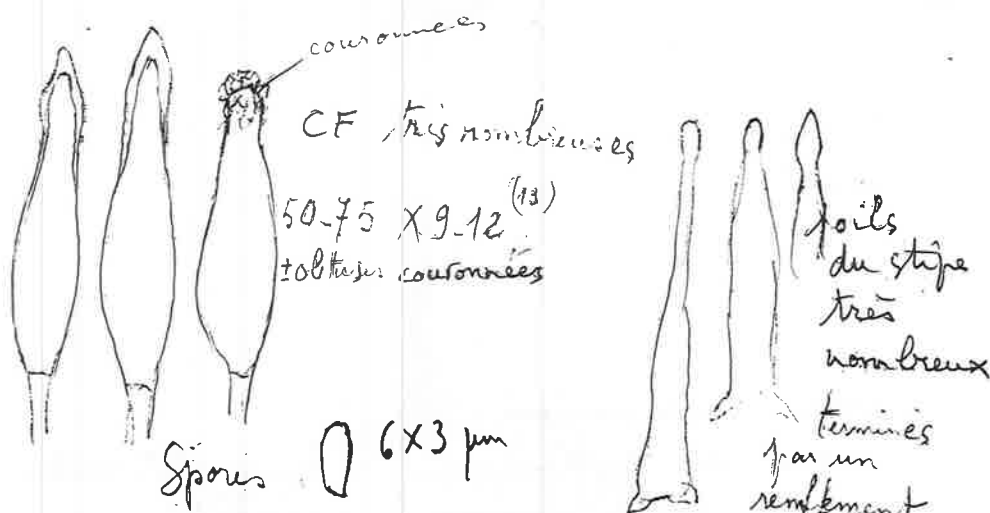 couronnees
CF très nombreuses
50-75 X 9-12 (13)
±obtuses couronnées
Spores 6X3 µm
poils
du stipe
très
nombreux
terminés
par un
renflement